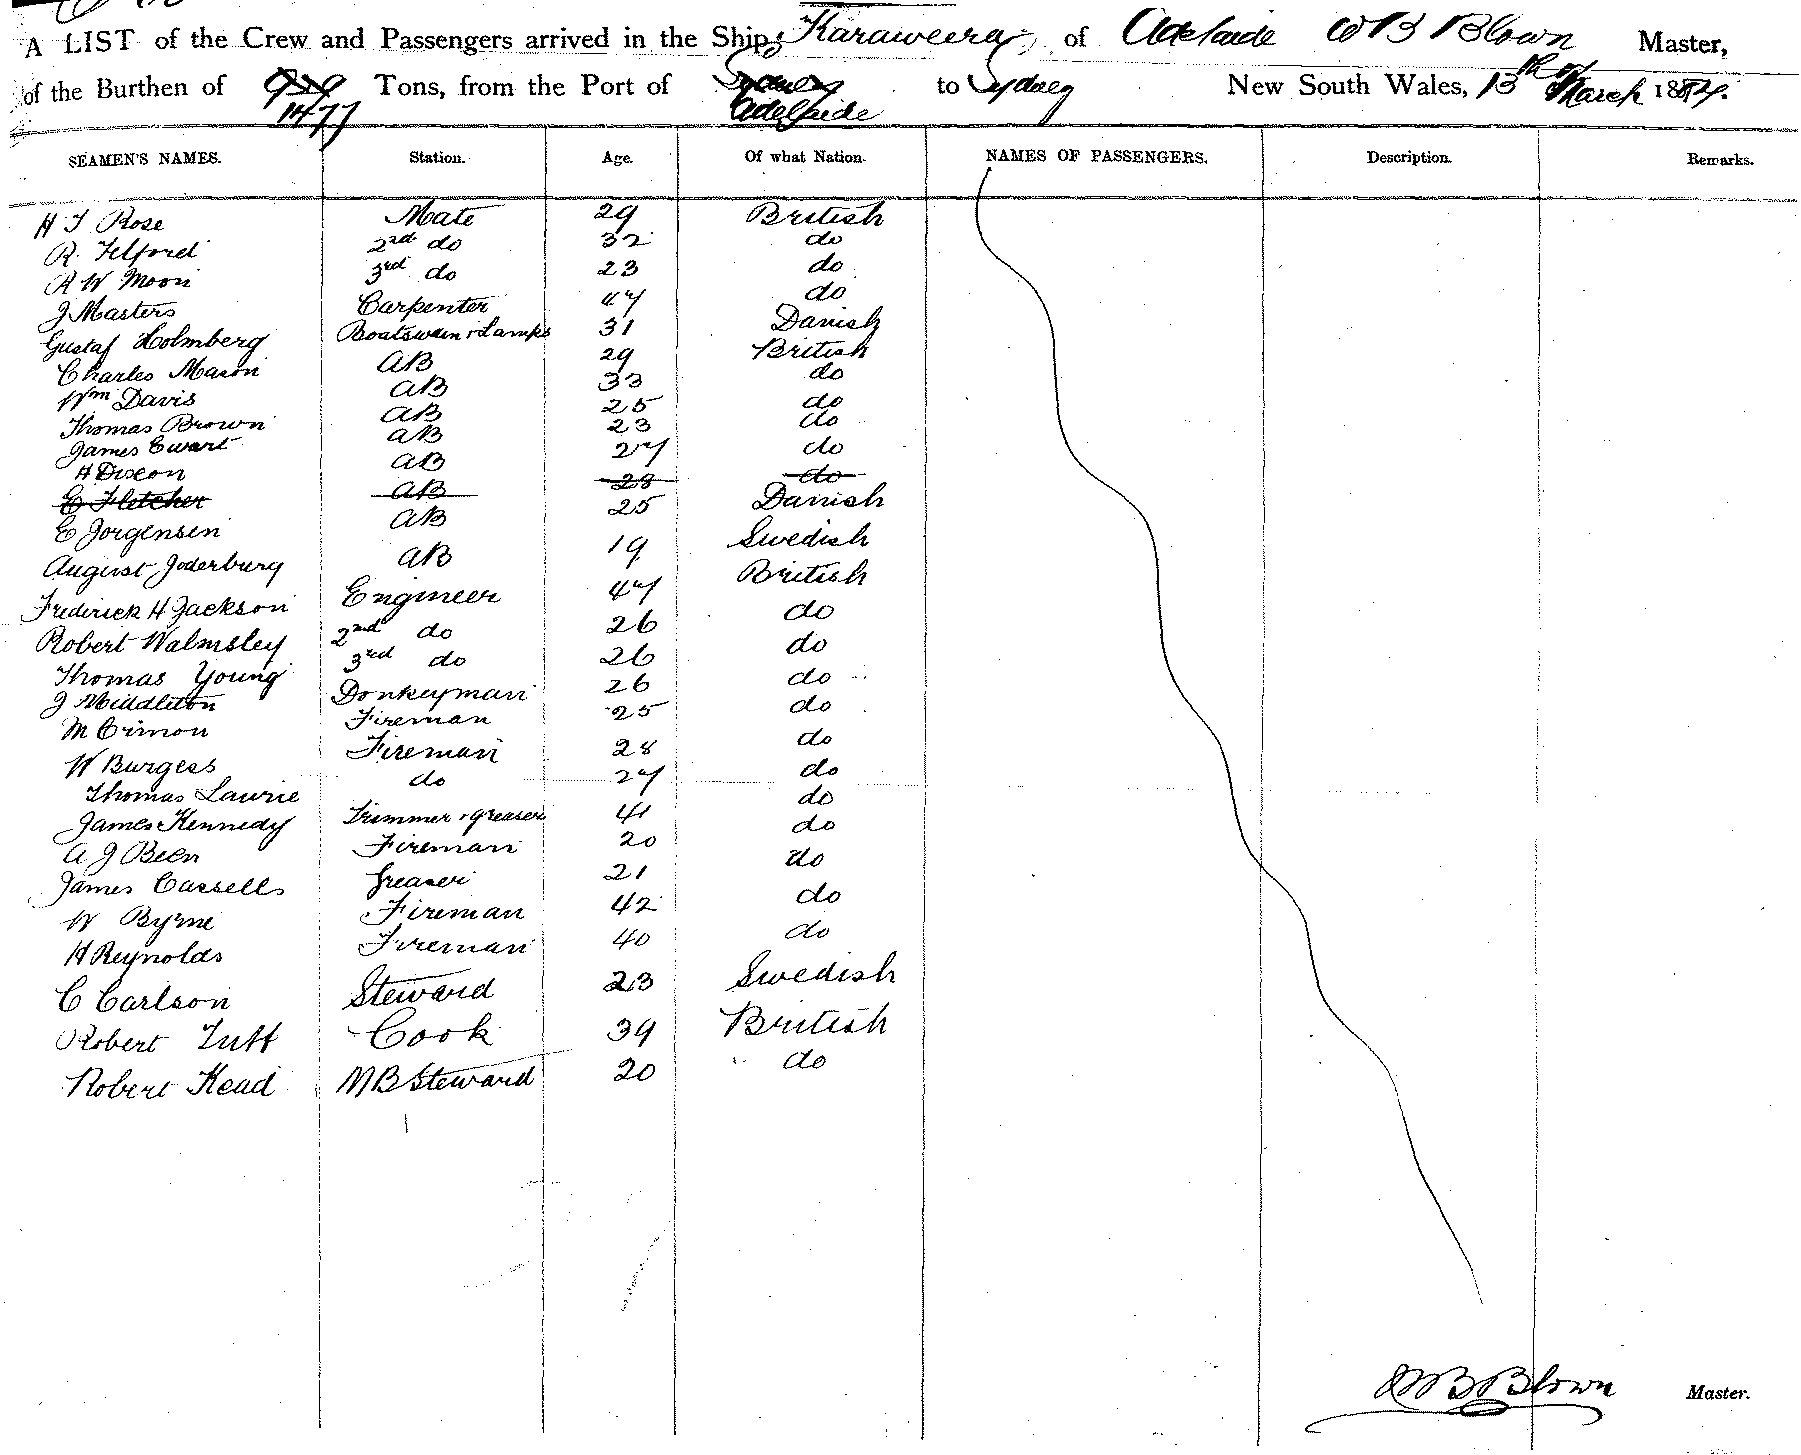 A LIST of the Crew and Passengers arrived in the Ship, Karaweera, of Adelaide W B Blown Master,
of the Burthen of 1477 Tons, from the Port of Sydney Adelaide to Sydney New South Wales, 13th March 1884.
SEAMEN'S NAMES. Station. Age. Of what Nation. NAMES OF PASSENGERS. Description. Remarks.
H J Rose Mate 29 British
R. Telford 2nd do 32 do
R W Moon 3rd do 23 do
J Masters Carpenter 47 do
Gustaf Holmberg Boatswain & Lamps 31 Danish
Charles Mason AB 29 British
Wm Davis AB 33 do
Thomas Brown AB 25 do
James Ewart AB 23 do
H Dixon AB 27 do
E Fletcher AB 28 do
E Jorgensen AB 25 Danish
August Joderburg AB 19 Swedish
Frederick H Jackson Engineer 47 British
Robert Walmsley 2nd do 26 do
Thomas Young 3rd do 26 do
J Middleton Donkeyman 26 do
M Crimon Fireman 25 do
W Burgess Fireman 28 do
Thomas Laurie do 27 do
James Kennedy Trimmer & greaser 41 do
A J Been Fireman 20 do
James Cassells Greaser 21 do
W Byrne Fireman 42 do
H Reynolds Fireman 40 do
C Carlson Steward 23 Swedish
Robert Tuft Cook 39 British
Robert Head M B Steward 20 do
W B Blown Master.